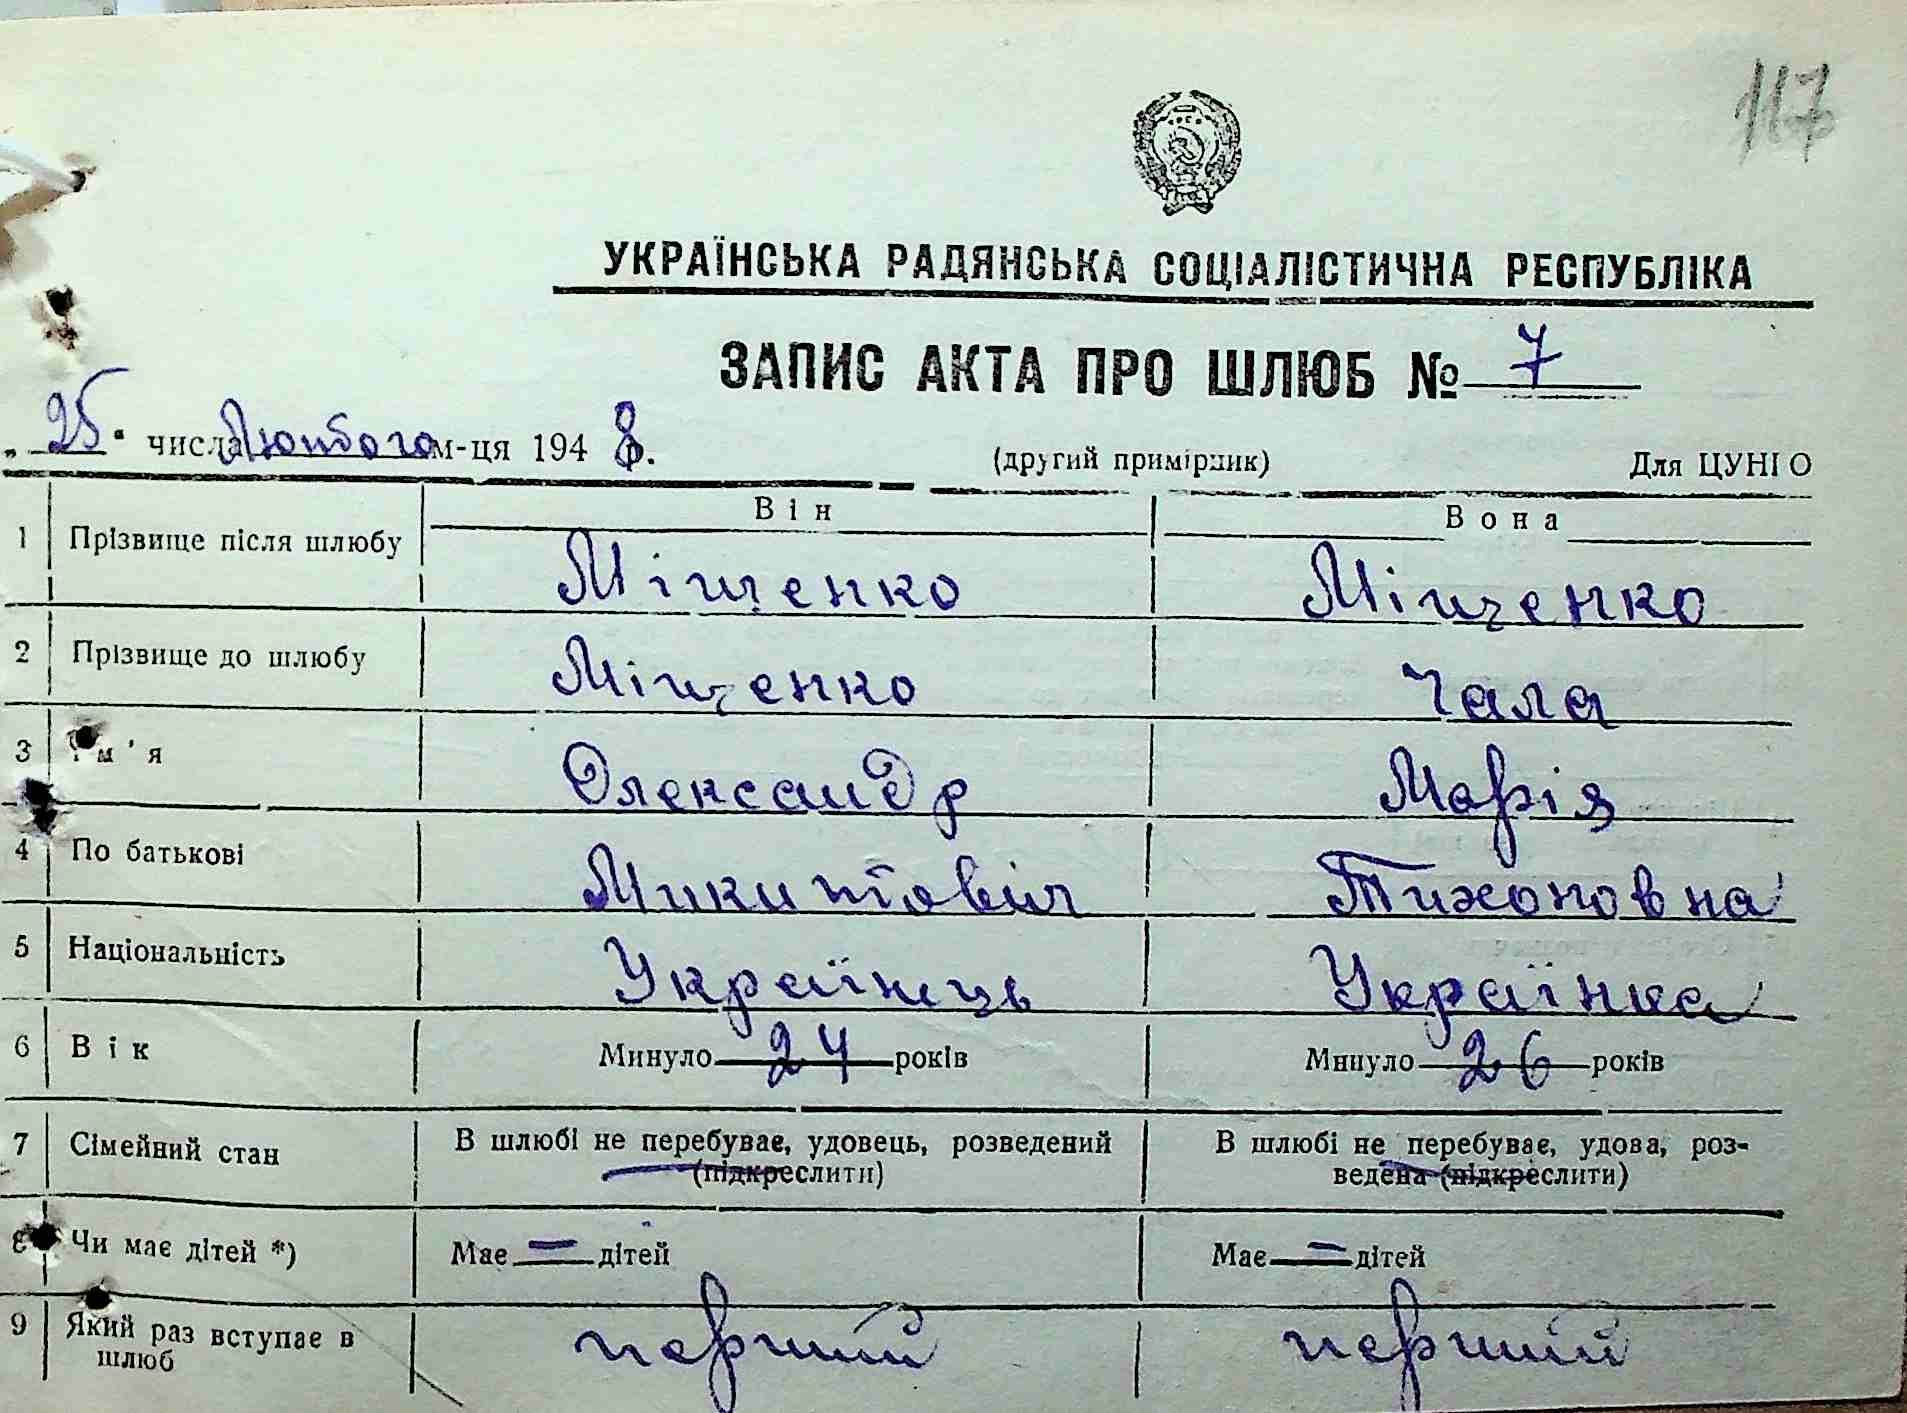 117
УКРАЇНСЬКА РАДЯНСЬКА СОЦІАЛІСТИЧНА РЕСПУБЛІКА
ЗАПИС АКТА ПРО ШЛЮБ № 7
„ 25 " числа Лютого м-ця 1948 р. (другий примірник) Для ЦУНГО
Він Вона
1 Прізвище після шлюбу Міщенко Міщенко
2 Прізвище до шлюбу Міщенко Чала
3 Ім'я Олександр Марія
4 По батькові Микитович Тихоновна
5 Національність Українець Українка
6 Вік Минуло 24 років Минуло 26 років
7 Сімейний стан В шлюбі не перебуває, удовець, розведений В шлюбі не перебуває, удова, роз-
(підкреслити) ведена (підкреслити)
8 Чи має дітей *) Має — дітей Має — дітей
9 Який раз вступає в перший перший
шлюб